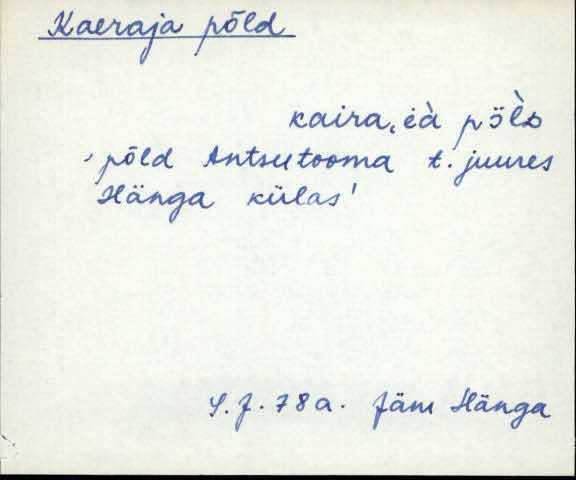 Kaeraja põld
kaira,èà pö̀ls
'põld Antsutooma t. juures
Hänga külas'
S.J. 78a. Jäm Hänga